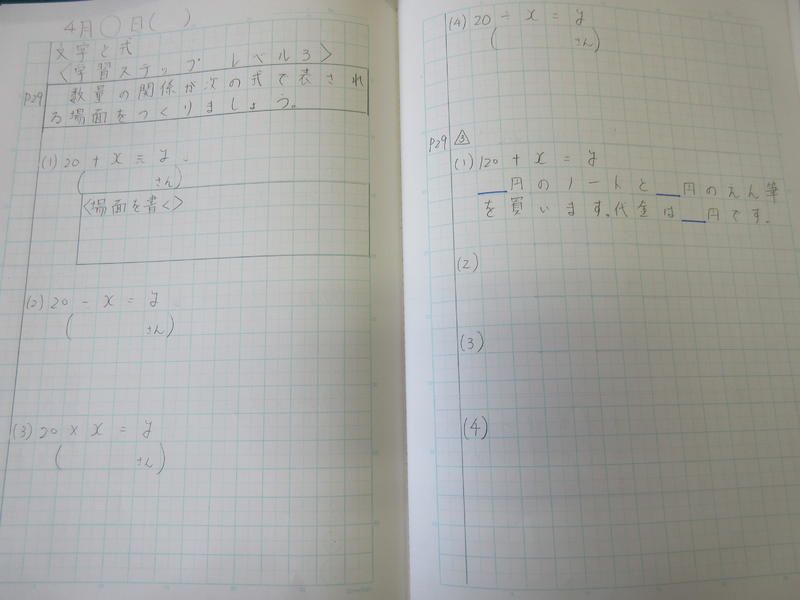 4月○日( )
文字と式
<学習ステップ レベル3>
P29 数量の関係が次の式で表され
る場面をつくりましょう。
(1) 20 + x = y
( さん)
<場面を書く>
(2) 20 - x = y
( さん)
(3) 20 × x = y
( さん)
(4) 20 ÷ x = y
( さん)
P29 3
(1) 120 + x = y
__円のノートと__円のえん筆
を買います。代金は__円です。
(2)
(3)
(4)